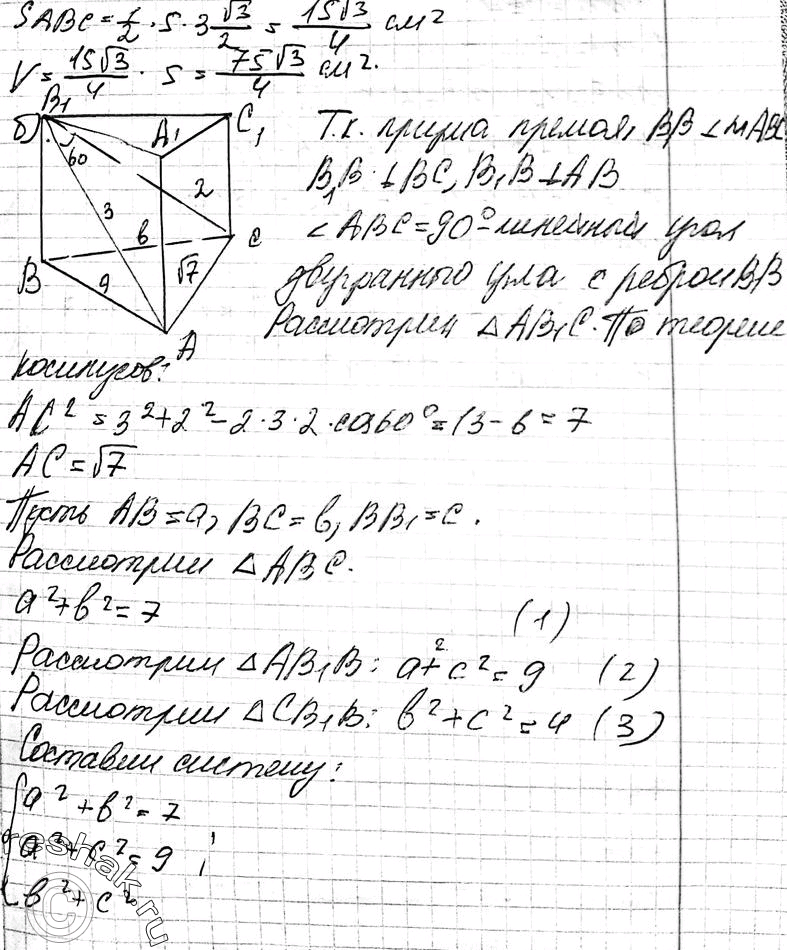 SABC = 1/2 · 5 · 3 √3/2 = 15√3/4 см²
V = 15√3/4 · 5 = 75√3/4 см².
б) B₁ A₁ C₁
60 3 2 в
B 9 √7 C
A
Т.к. призма прямая, BB ⊥ пл ABC
B₁B ⊥ BC, B₁B ⊥ AB
∠ABC = 90° – линейный угол
двугранного угла с ребром BB
Рассмотрим △AB₁C. По теореме
косинусов:
AC² = 3² + 2² – 2·3·2·cos60° = 13 – 6 = 7
AC = √7
Пусть AB = a, BC = в, BB₁ = c.
Рассмотрим △ABC.
a² + в² = 7 (1)
Рассмотрим △AB₁B: a² + c² = 9 (2)
Рассмотрим △CB₁B: в² + c² = 4 (3)
Составим систему:
{ a² + в² = 7
a² + c² = 9 ;
в² + c²
reshak.ru
©